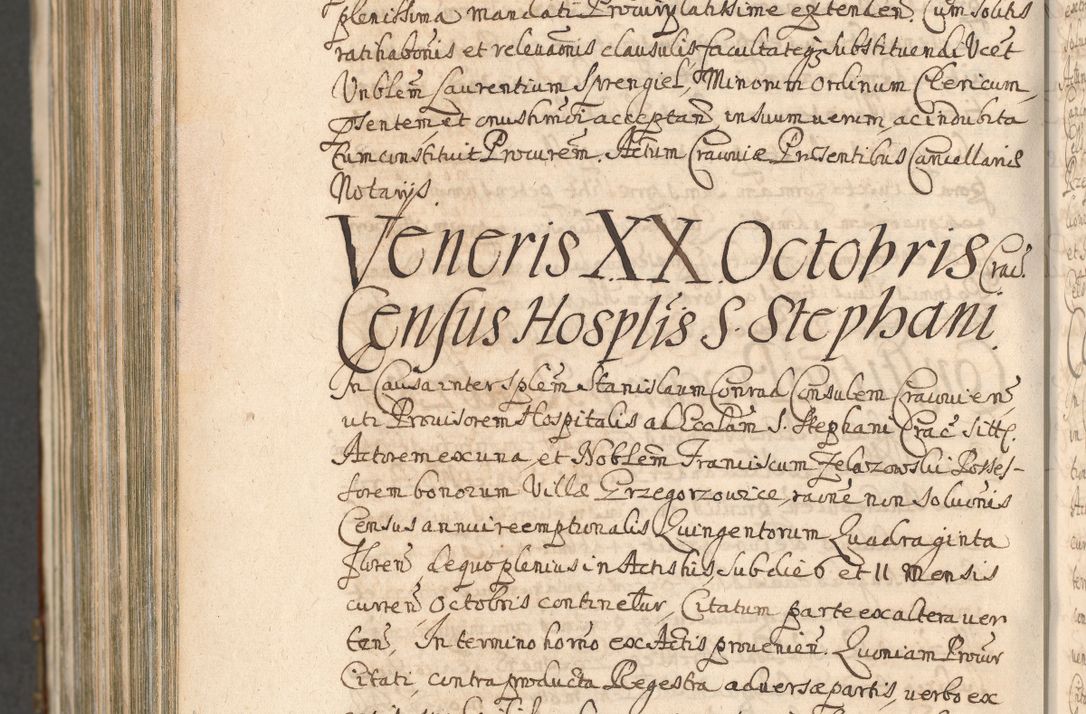 plenissima mandati Procur̃ latissime extenden̄. Cum solitis
ratihabōnis et relevaōnis clausulis, facultateq; substituendi Vcēt
Unblem̄ Laurentium Sprengiel, Minorum Ordinum Clericum,
p̄sentem, et onus hm̄di acceptan̄ in suum verum, ac indubita
tum constituit Procurem̄. Actum Cracoviæ Præsentibus Cancellariæ
Notarijs.
Veneris XX. Octobris Crac̄.
Census Hosplis S. Stephani.
In Causa inter Splem̄ Stanislaum Conrad Consulem Cracovien̄,
uti Provisorem Hospitalis ad Ecclām S. Stephani Crac̄ sitt̄.
Actorem ex una, et Noblem̄ Franciscum Żelazowski Posses-
sorem bonorum Villæ Przegorzowice, raōne non soluōnis
Census annui reemptionalis Quingentorum Quadraginta
Floren̄, de quo plenius in Actis his, sub die 6 et 11 Mensis
curren̄ Octobris continetur, Citatum parte ex altera ver
ten̄, In termino horno ex Actis provenien̄. Quoniam Procur
Citati, contra producta Regestra adversæ partis, verbo ex